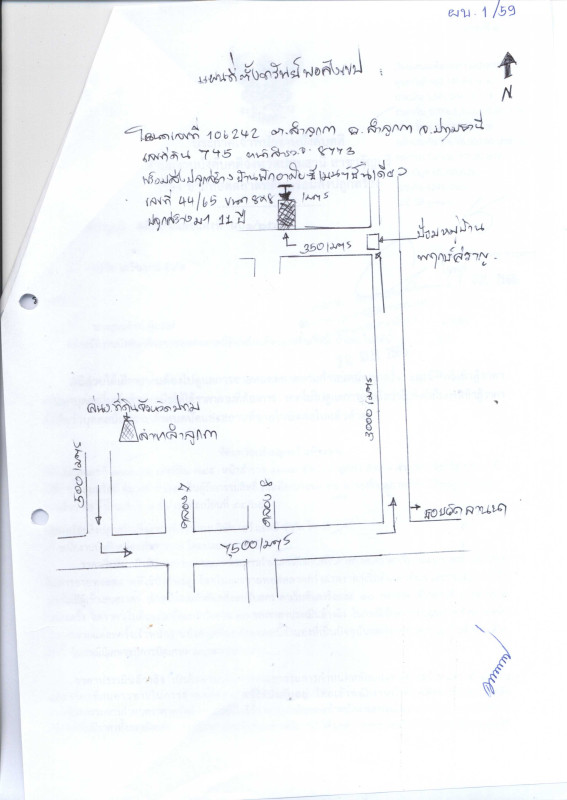 ผบ. 1/59
แผนที่ตั้งทรัพย์พอสังเขป :
N
โฉนดเลขที่ 106242 ต.ลำลูกกา อ.ลำลูกกา จ.ปทุมธานี
เลขที่ดิน 745 หน้าสำรวจ 8773
พร้อมสิ่งปลูกสร้างบ้านพักอาศัย
เลขที่ 44/65 ขนาด 8x8 เมตร
ปลูกสร้างมา 11 ปี
350 เมตร
ป้อมหมู่บ้าน
พฤกษ์สำราญ
3000 เมตร
สนง.ที่ดินจังหวัดปทุม
สาขาลำลูกกา
500 เมตร
คลอง 7
คลอง 8
7,500 เมตร
ซอยวัดลานนา